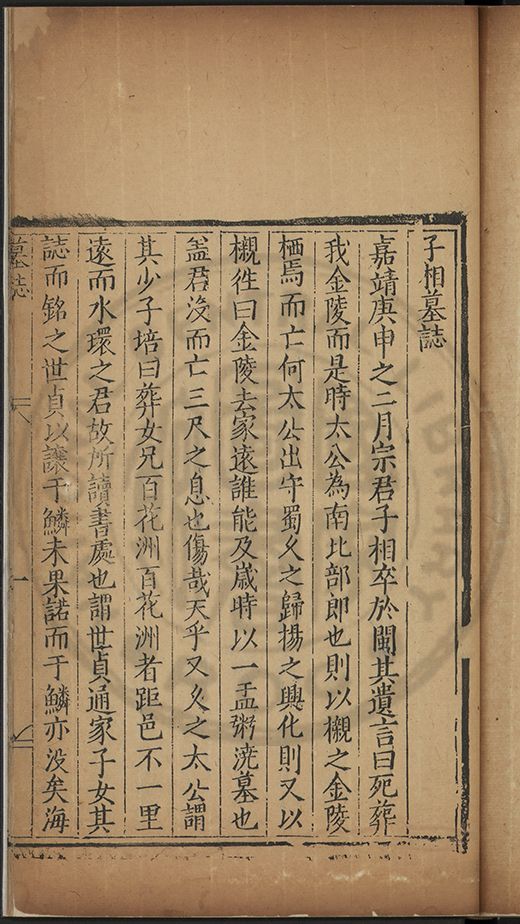 子相墓誌
嘉靖庚申之二月宗君子相卒於閩其遺言曰死葬
我金陵而是時太公為南比部郎也則以櫬之金陵
栖焉而亡何太公出守蜀久之歸揚之興化則又以
櫬徃曰金陵去家遠誰能及歲時以一盂粥澆墓也
盖君沒而亡三尺之息也傷哉天乎又久之太公謂
其少子培曰葬女兄百花洲百花洲者距邑不一里
遠而水環之君故所讀書處也謂世貞通家子女其
誌而銘之世貞以讓于鱗未果諾而于鱗亦没矣海
墓誌
一